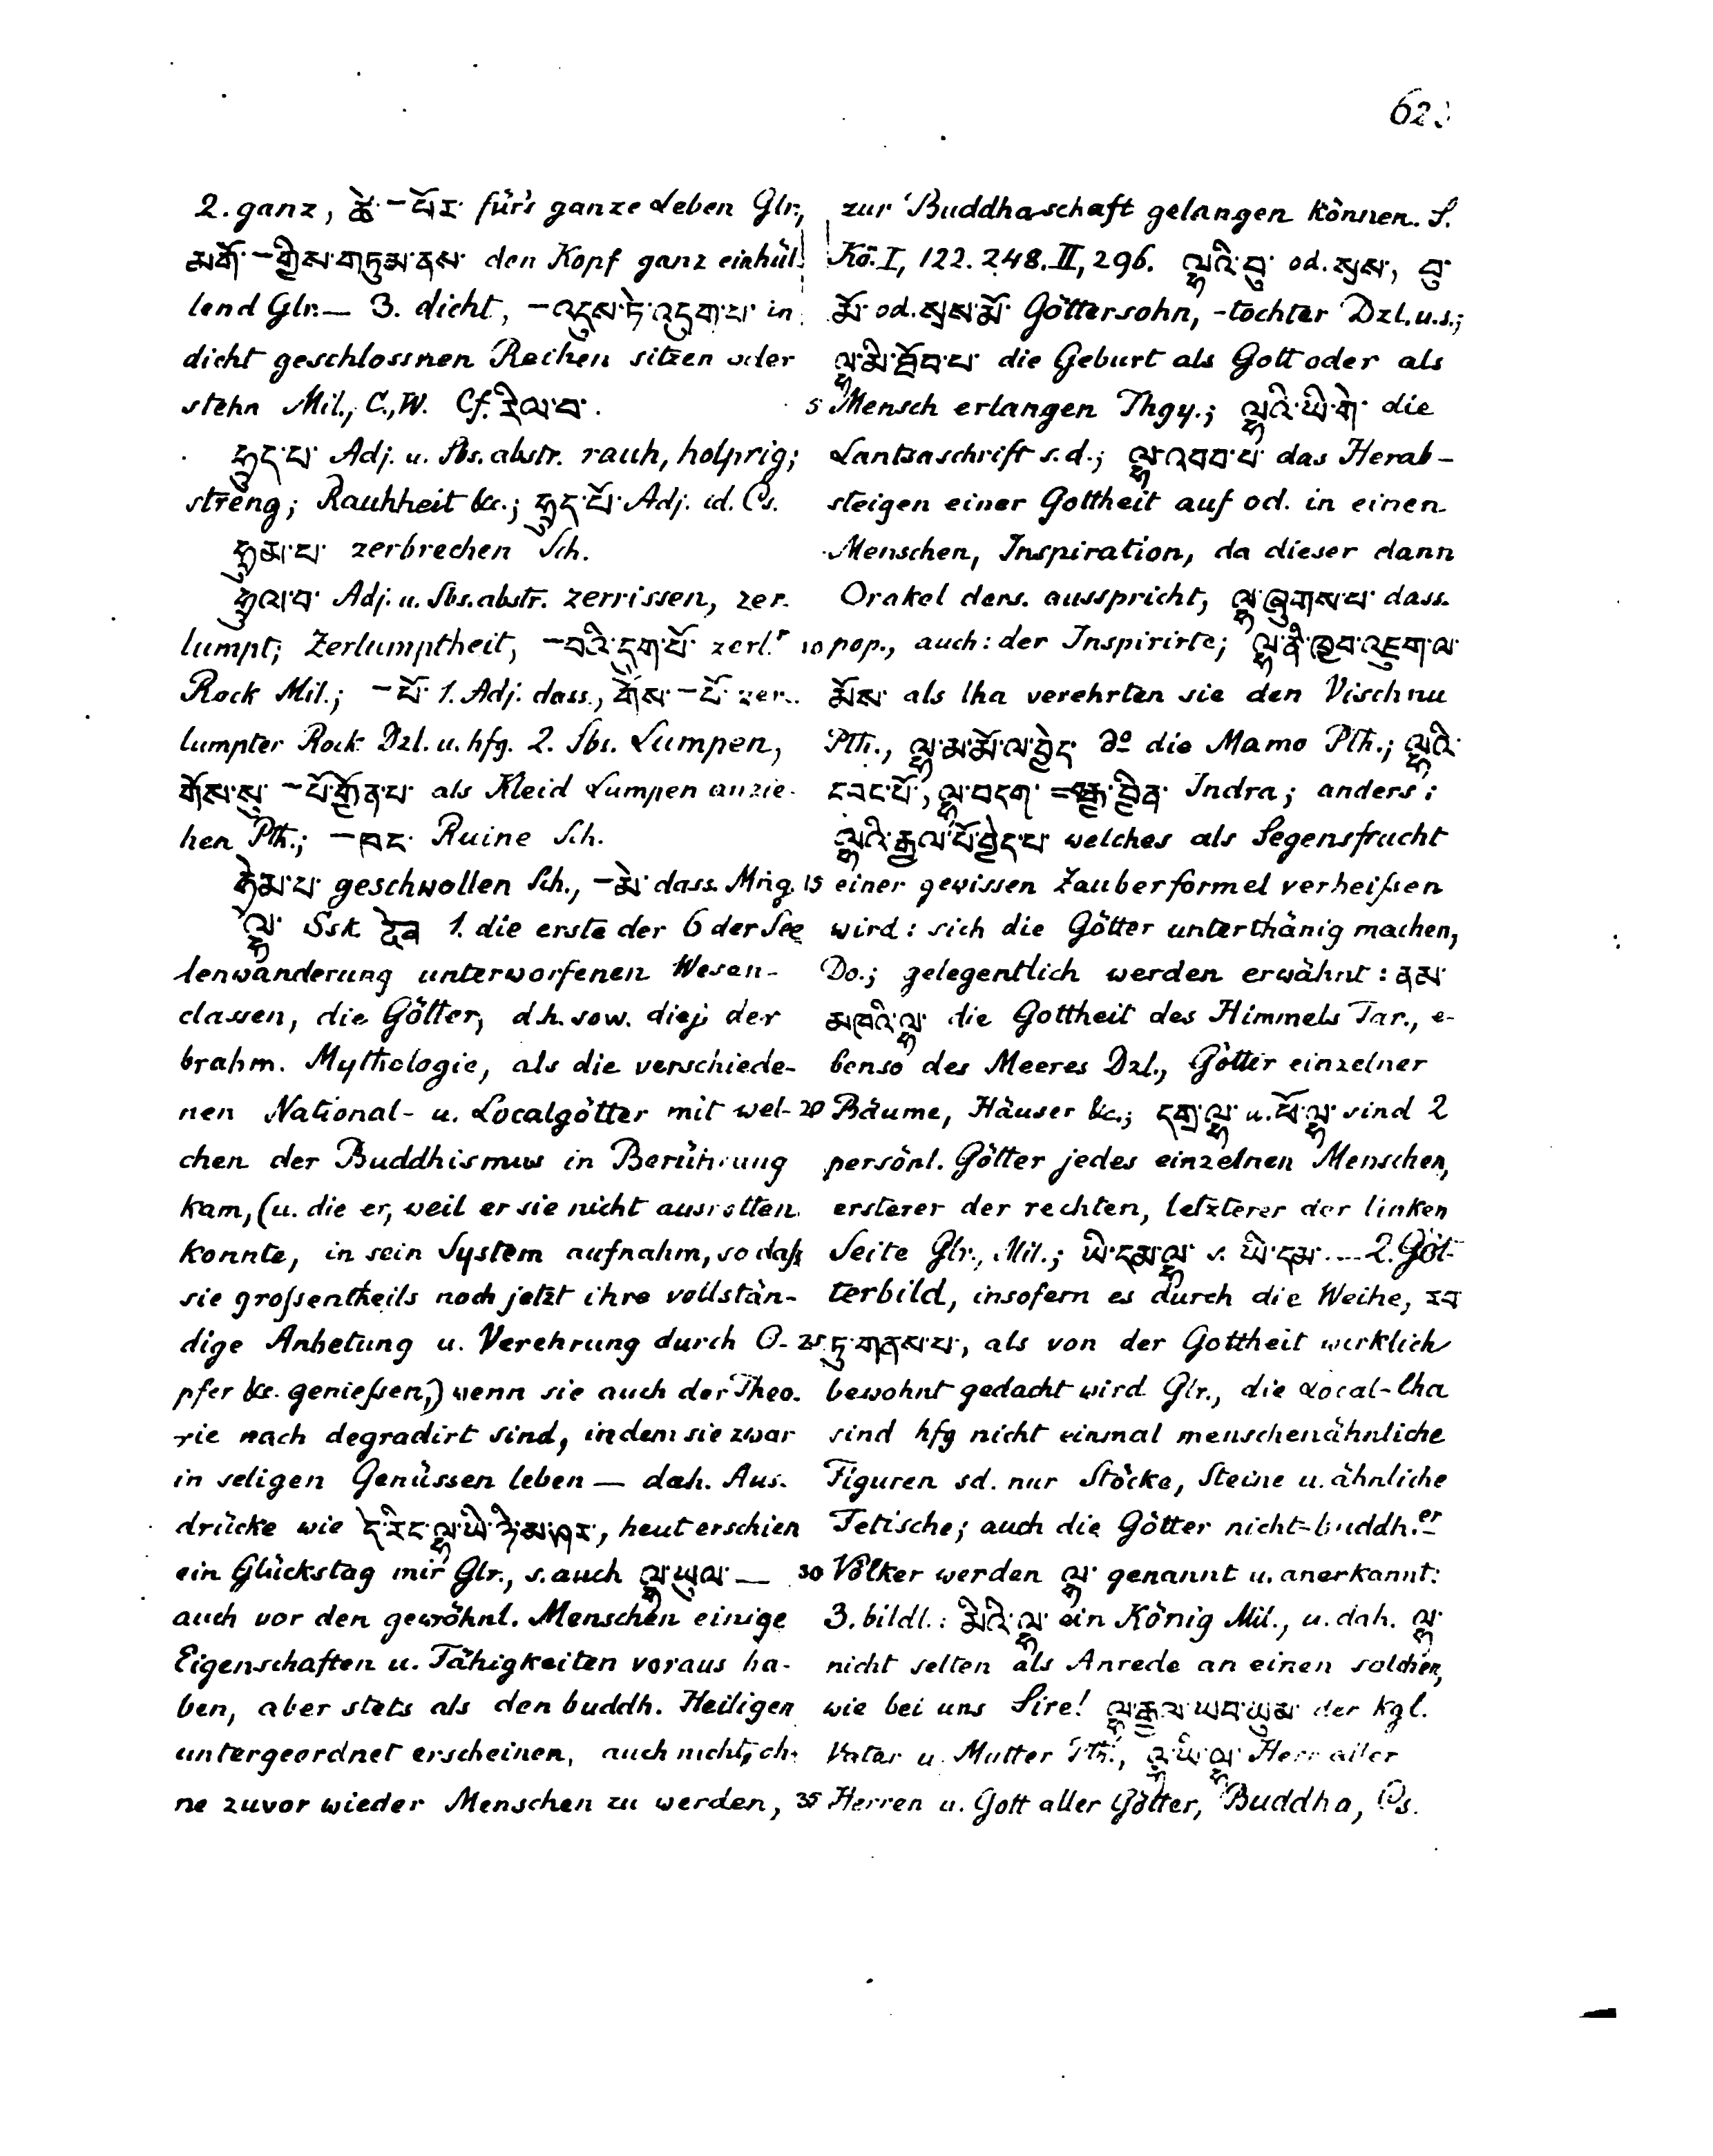 623
2. ganz, ཚེ་ – པོར་ für's ganze Leben Glr.,
མགོ་ – གྱིས་གཏུམ་ནས་ den Kopf ganz einhül-
lend Glr. — 3. dicht, – འདུས་ཏེ་འདུག་པ་ in
dicht geschlossnen Reihen sitzen oder
stehn Mil., C., W. Cf. རིལ་བ་.
ཧྲུད་པ་ Adj. u. Sbs. abstr. rauh, holprig;
streng; Rauhheit &c.; ཧྲུད་པོ་ Adj. id. Cs.
ཧྲུམ་པ་ zerbrechen Sch.
ཧྲུལ་བ་ Adj. u. Sbs. abstr. zerrissen, zer-
lumpt; Zerlumptheit, – བའི་དུག་པོ་ zerl.r
Rock Mil.; – པོ་ 1. Adj. dass., གོས་ – པོ་ zer-
lumpter Rock Dzl. u. hfg. 2. Sbs. Lumpen,
གོས་སུ་ – པོ་གྱོན་པ་ als Kleid Lumpen anzie-
hen Pth.; – ཁང་ Ruine Sch.
ཧྲེམ་པ་ geschwollen Sch., – མེ་ dass. Mṅg.
ལྷ་ Ssk. देव 1. die erste der 6 der See-
lenwanderung unterworfenen Wesen-
classen, die Götter, d.h. sow. diej. der
brahm. Mythologie, als die verschiede-
nen National- u. Localgötter mit wel-
chen der Buddhismus in Berührung
kam, (u. die er, weil er sie nicht ausrotten
konnte, in sein System aufnahm, so daß
sie großentheils noch jetzt ihre vollstän-
dige Anbetung u. Verehrung durch O-
pfer &c. genießen,) wenn sie auch der Theo-
rie nach degradirt sind, indem sie zwar
in seligen Genüssen leben — dah. Aus-
drücke wie དེ་རིང་ལྷ་ཡི་ཉི་མ་ཤར་, heut erschien
ein Glückstag mir Glr., s. auch ལྷ་ཡུལ་ —
auch vor den gewöhnl. Menschen einige
Eigenschaften u. Fähigkeiten voraus ha-
ben, aber stets als den buddh. Heiligen
untergeordnet erscheinen, auch nicht, oh-
ne zuvor wieder Menschen zu werden,
zur Buddhaschaft gelangen können. S.
Kö. I, 122. 248. II, 296. ལྷའི་བུ་ od. སྲས་, བུ་
མོ་ od. སྲས་མོ་ Göttersohn, -tochter Dzl. u.s.;
ལྷ་མི་ཐོབ་པ་ die Geburt als Gott oder als
5 Mensch erlangen Thgy.; ལྷའི་ཡི་གེ་ die
Lantsaschrift s.d.; ལྷ་འབབ་པ་ das Herab-
steigen einer Gottheit auf od. in einen
Menschen, Inspiration, da dieser dann
Orakel ders. ausspricht, ལྷ་ཞུགས་པ་ dass.
10 pop., auch: der Inspirirte; ལྷ་ནི་ཁྱབ་འཇུག་ལ་
མོས་ als lha verehrten sie den Vischnu
Pth., ལྷ་མ་མོ་ལ་བྱེད་ do die Mamo Pth.; ལྷའི་
དབང་པོ་, ལྷ་བདག་ = བརྒྱ་བྱིན་ Indra; anders:
ལྷའི་རྒྱལ་པོ་བྱེད་པ་ welches als Segensfrucht
15 einer gewissen Zauberformel verheißen
wird: sich die Götter unterthänig machen,
Do.; gelegentlich werden erwähnt: ནམ་
མཁའི་ལྷ་ die Gottheit des Himmels Tar., e-
benso des Meeres Dzl., Götter einzelner
20 Bäume, Häuser &c.; དགྲ་ལྷ་ u. ཕོ་ལྷ་ sind 2
persönl. Götter jedes einzelnen Menschen,
ersterer der rechten, letzterer der linken
Seite Glr., Mil.; ཡི་དམ་ལྷ་ s. ཡི་དམ་ — 2. Göt-
terbild, insofern es durch die Weihe, རབ་
25 ཏུ་གནས་པ་, als von der Gottheit wirklich
bewohnt gedacht wird Glr., die Local-lha
sind hfg nicht einmal menschenähnliche
Figuren sd. nur Stöcke, Steine u. ähnliche
Fetische; auch die Götter nicht-buddh.er
30 Völker werden ལྷ་ genannt u. anerkannt:
3. bildl.: མིའི་ལྷ་ ein König Mil., u. dah. ལྷ་
nicht selten als Anrede an einen solchen,
wie bei uns Sire! ལྷ་རྒྱལ་ཡབ་ཡུམ་ der kgl.
Vater u. Mutter Pth., ལྷ་ཡི་ལྷ་ Herr aller
35 Herren u. Gott aller Götter, Buddha, Cs.